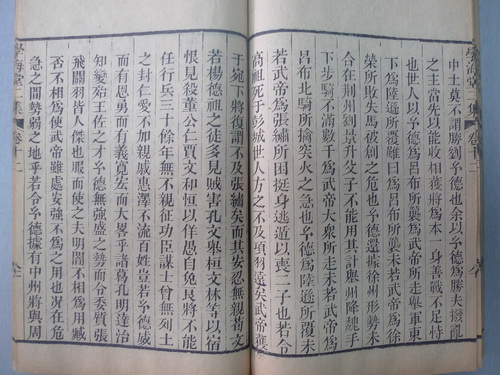 學海堂二集 卷十二
中土莫不謂勝劉玄德也余以玄德為勝夫撥亂
之主當先以能收相獲將為本一身善戰不足恃
也世人以玄德為呂布所襲為武帝所走舉軍東
下為陸遜所覆雖曰為呂布所襲未若武帝為徐
榮所敗失馬被創之危也玄德還據徐州形勢未
合在荆州劉景升父子不能用其計舉州降魏手
下步騎不滿數千為武帝大衆所走未若武帝為
呂布北騎所擒突火之急也玄德為陸遜所覆未
若武帝為張繡所困挺身逃遁以喪二子也若令
高祖死于彭城世人方之不及項羽遠矣武帝獲
于宛下將復謂不及張繡矣而其安忍無親荀文
若楊德祖之徒多見賊害孔文舉桓文林等以宿
恨見殺董公仁賈文和恒以佯愚自免良將不能
任行兵三十餘年無不親征功臣謀士曾無列土
之封仁愛不加親戚惠澤不流百姓豈若玄德威
而有恩勇而有義寬宏而大畧乎諸葛孔明達治
知變殆王佐之才玄德無強盛之勢而令委質張
飛關羽皆人傑也服而使之夫明闇不相為用臧
否不相為使武帝雖處安強不為之用也况在危
急之間勢弱之地乎若令玄德據有中州將與周
學海堂二集 卷十二